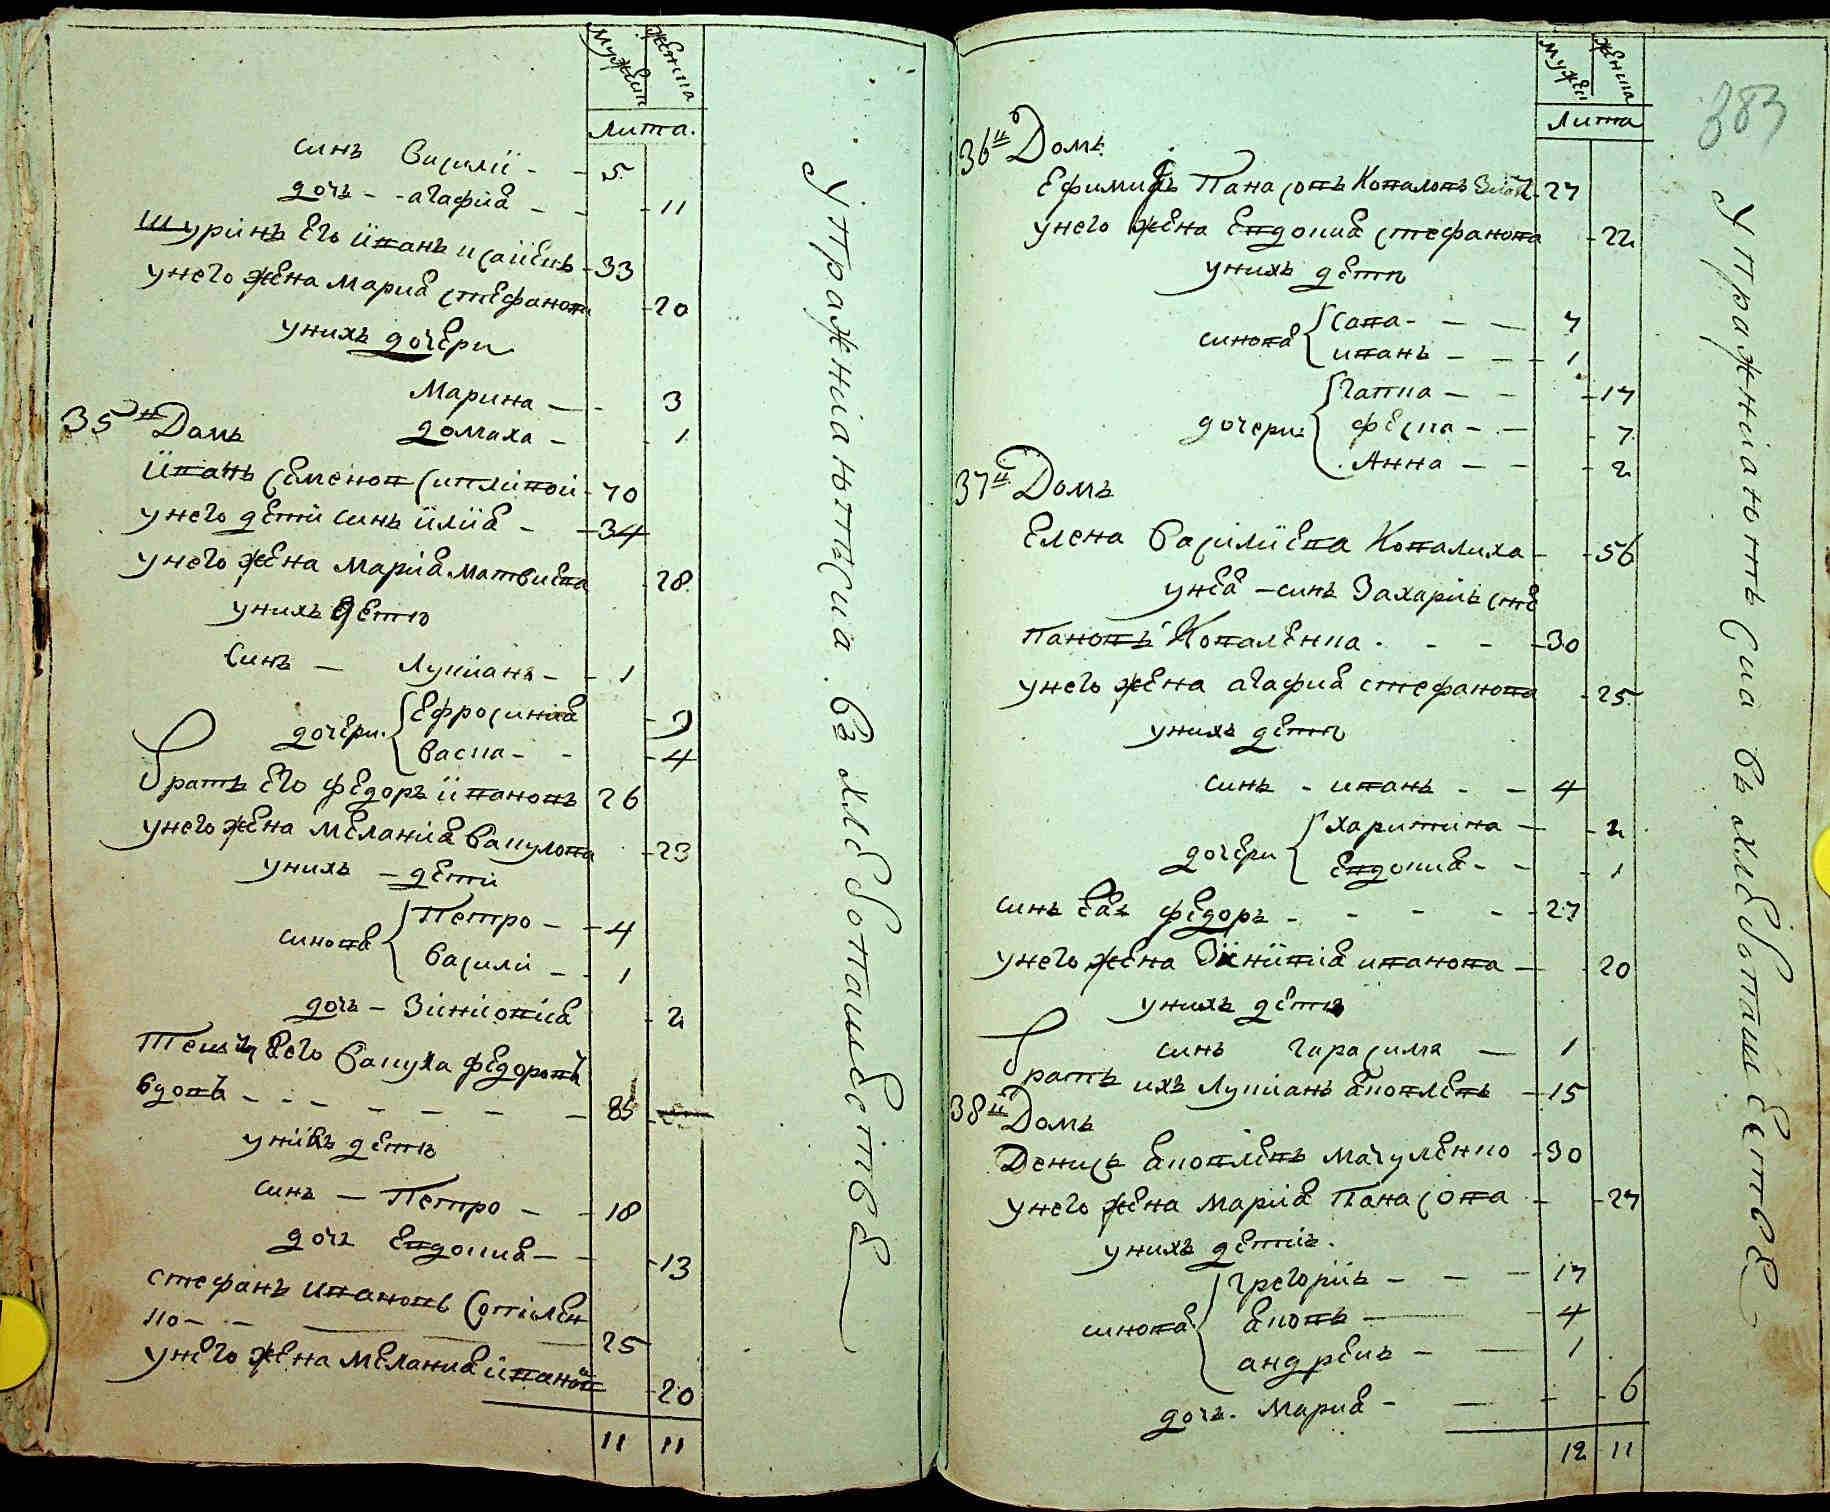 мужеск женска
лита.
синъ Василій - - 5
дочъ - - агафиа - - 11
Шуринъ его иванъ исаиевъ - 33
унего жена мариа стефанова - 20
унихъ дочери
Марина - - 3
35й Домъ домаха - 1
иванъ семенов - 70
унего дети синъ илиа - - 34
унего жена мариа матвиева - 28
унихъ дети
Синъ - Лукианъ - - 1
дочери. Ефросиниа
васка - - - 4
братъ его федоръ ивановъ 26
унего жена меланиа вакулова - 23
унихъ - дети
синова Петро - - 4
василй - - 1
дочъ - Зиновиа - 2
его федоровъ
вдовъ - - - - - - - 85
дети
синъ - Петро - - 18
дочъ Евдокиа - - - 13
стефанъ ивановъ сотнлен
ко - - 25
унего жена меланиа иванова - 20
11 11
Упражнаютьсиа. въ хлебопашестве
мужеск женска
лита
383
36й Домъ
Ефимиа Панасовъ Ковальовъ 27
унего жена Евдокиа стефанова - 22
унихъ дети
синова сава - - - 7
иванъ - - - 1
дочери: гапка - - - 17
феска - - - 7
Анна - - - 2
37й Домъ
Елена василиева Ковалиха - - 56
унеа - синъ Захариь сте
пановъ Коваленка - - - 30
унего жена агафиа стефанова - 25
унихъ дети
синъ - иванъ - - 4
дочери харитина - - 2
Евдокиа - - - 1
синъ еа федоръ - - - - - 27
унего жена иванова - - 20
унихъ дети
синъ гарасимъ - 1
братъ ихъ Лукианъ аковлевъ - 15
38й Домъ
Денисъ аковлевъ мачуленко - 30
унего жена мариа Панасова - - 27
унихъ дети.
синова. григорий - - - 17
аковъ - - 4
андрей - - 1
дочъ. Мариа - - - - 6
12 11
Упражнаютьсиа въ хлебопашестве